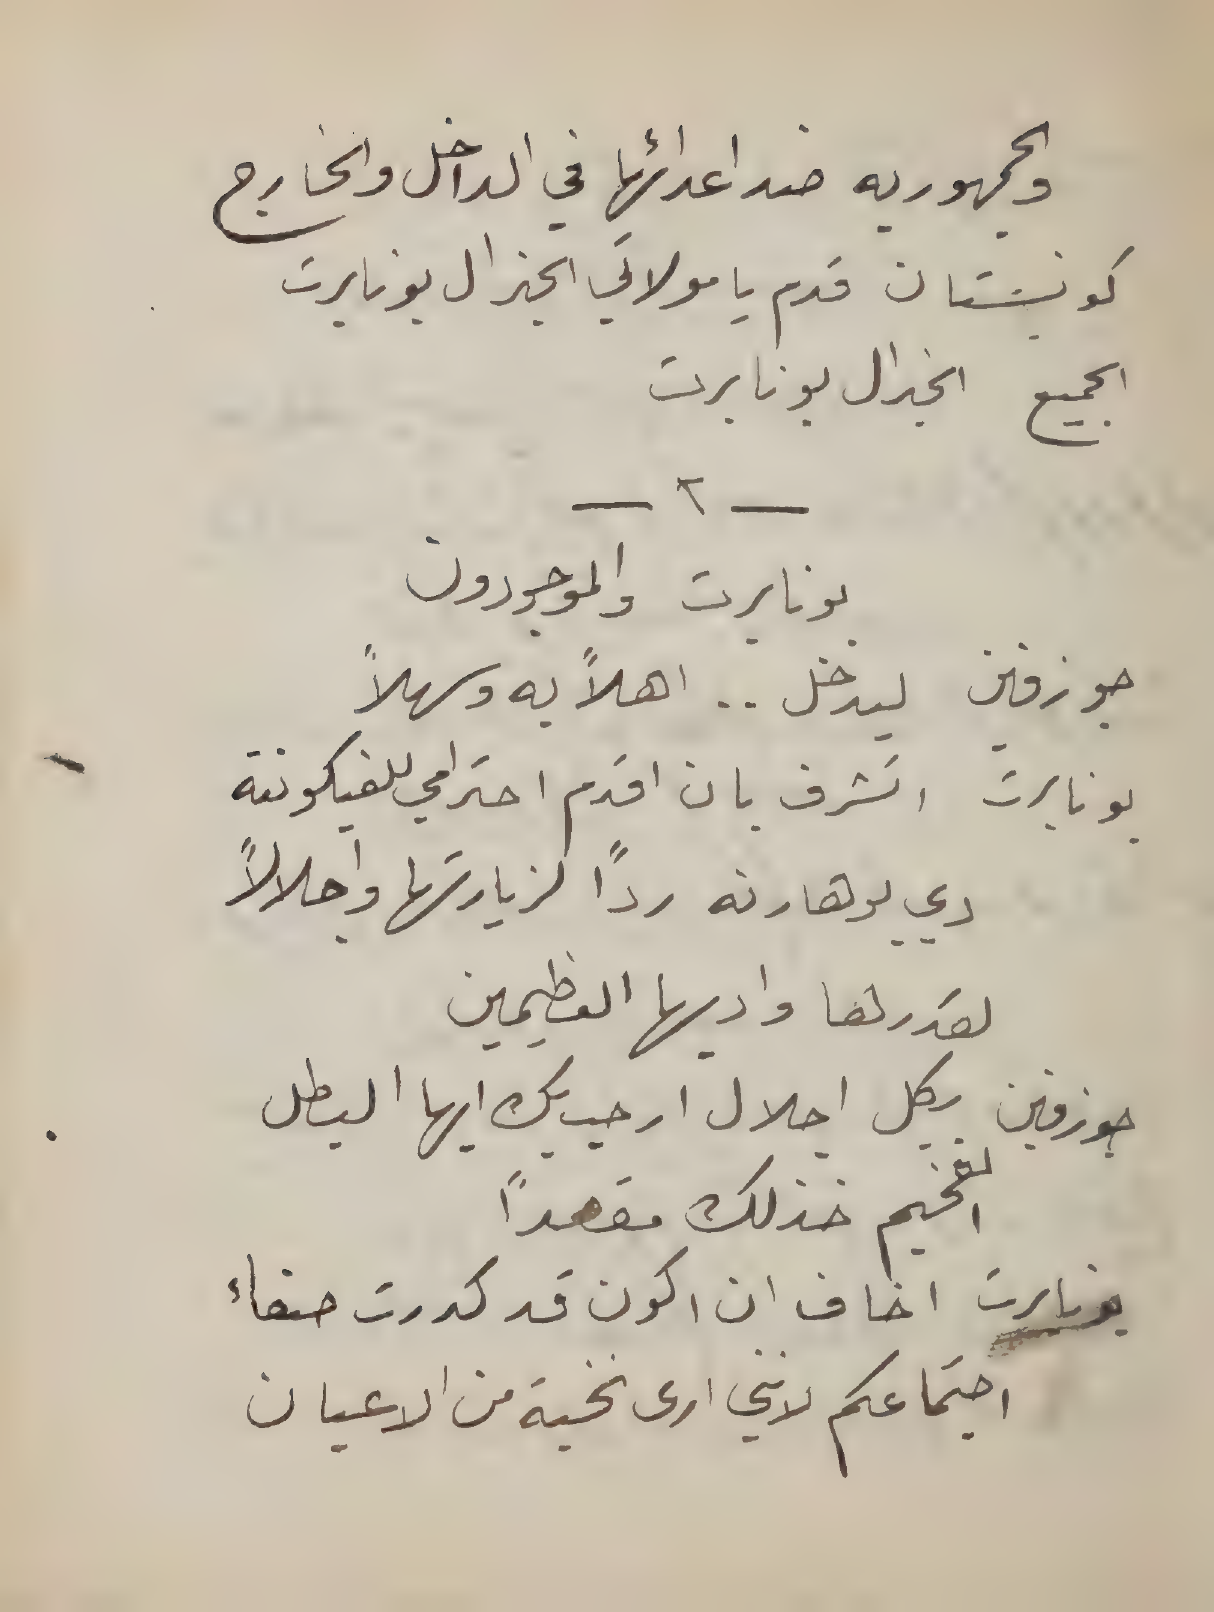 والجمهوريه ضد اعدائها في الداخل والخارج
كونستان قدم يا مولاتي الجنرال بونابرت
الجميع الجنرال بونابرت
— ٢ —
بونابرت والموجودون
جوزفين ليدخل .. اهلاً به وسهلاً
بونابرت اتشرف بان اقدم احترامي للفيكونتة
دي بوهارنه رداً لزيارتها واجلالاً
لقدرها وادبها العظيمين
جوزفين بكل اجلال ارحب بك ايها البطل
الفخيم خذ لك مقعداً
بونابرت اخاف ان اكون قد كدرت صفاء
اجتماعكم لانني ارى نخبة من الاعيان